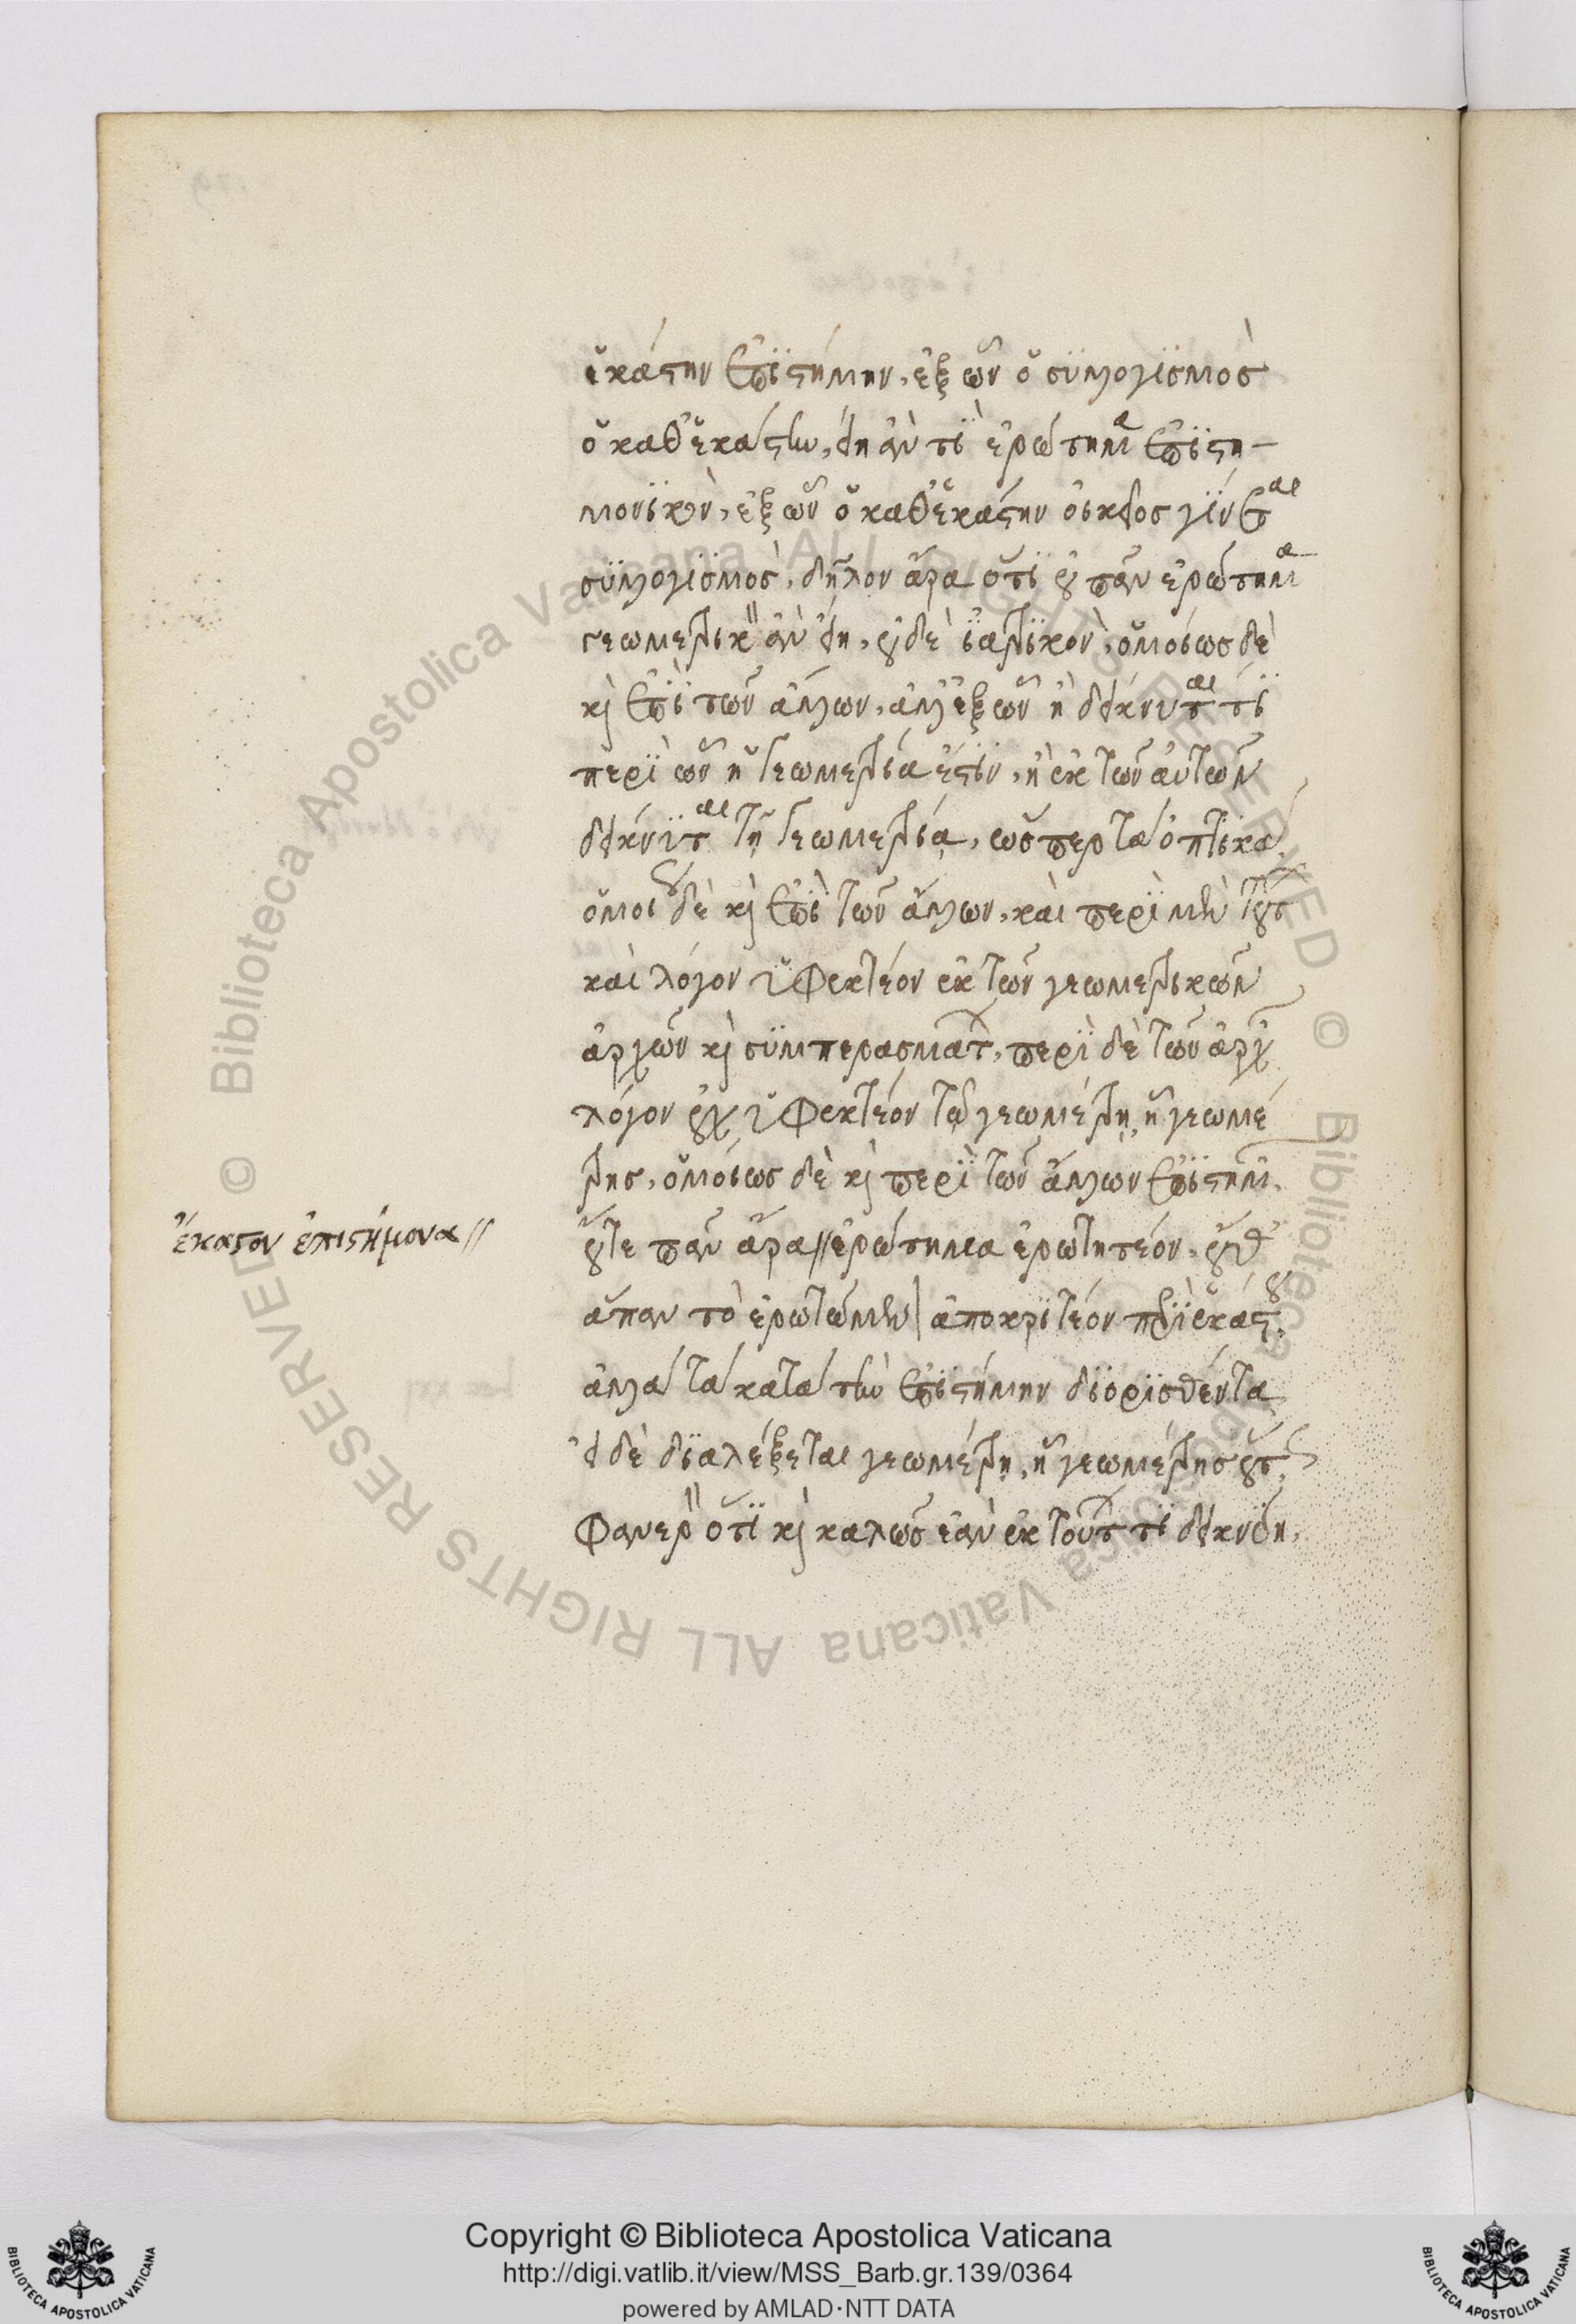 ἑκάστην ἐπιστήμην, ἐξ ὧν ὁ συλλογισμὸς
ὁ καθ' ἑκάστην, εἴη ἂν τὶ ἐρώτημα ἐπιστη-
μονικὸν, ἐξ ὧν ὁ καθ' ἑκάστην οἰκεῖος γίνεται
συλλογισμὸς, δῆλον ἄρα ὅτι οὐ πᾶν ἐρώτημα
γεωμετρικὸν ἂν εἴη, οὐδὲ ἰατρικὸν, ὁμοίως δὲ
καὶ ἐπὶ τῶν ἄλλων, ἀλλ' ἐξ ὧν ἢ δείκνυταί τι
περὶ ὧν ἡ γεωμετρία ἐστὶν, ἢ ἐκ τῶν αὐτῶν
δείκνυται τῇ γεωμετρίᾳ, ὥσπερ τὰ ὀπτικά.
ὁμοίως δὲ καὶ ἐπὶ τῶν ἄλλων, καὶ περὶ μὲν τούτων
καὶ λόγον ὑφεκτέον ἐκ τῶν γεωμετρικῶν
ἀρχῶν καὶ συμπερασμάτων, περὶ δὲ τῶν ἀρχῶν
λόγον οὐχ ὑφεκτέον τῷ γεωμέτρῃ, ᾗ γεωμέ
τρης, ὁμοίως δὲ καὶ περὶ τῶν ἄλλων ἐπιστημῶν.
οὔτε πᾶν ἄρα // ἐρώτημα ἐρωτητέον, οὔθ'
ἅπαν τὸ ἐρωτώμενον ἀποκριτέον περὶ ἑκάστου,
ἀλλὰ τὰ κατὰ τὴν ἐπιστήμην διορισθέντα
εἰ δὲ διαλέξεται γεωμέτρῃ, ᾗ γεωμέτρης οὕτως,
φανερὸν ὅτι καὶ καλῶς ἐὰν ἐκ τούτων τι δεικνύῃ,
ἕκαστον ἐπιστήμονα //
© Biblioteca Apostolica Vaticana ALL RIGHTS RESERVED © Biblioteca Apostolica Vaticana ALL RIGHTS RESERVED
Copyright © Biblioteca Apostolica Vaticana
http://digi.vatlib.it/view/MSS_Barb.gr.139/0364
powered by AMLAD·NTT DATA
BIBLIOTECA APOSTOLICA VATICANA
BIBLIOTECA APOSTOLICA VATICANA